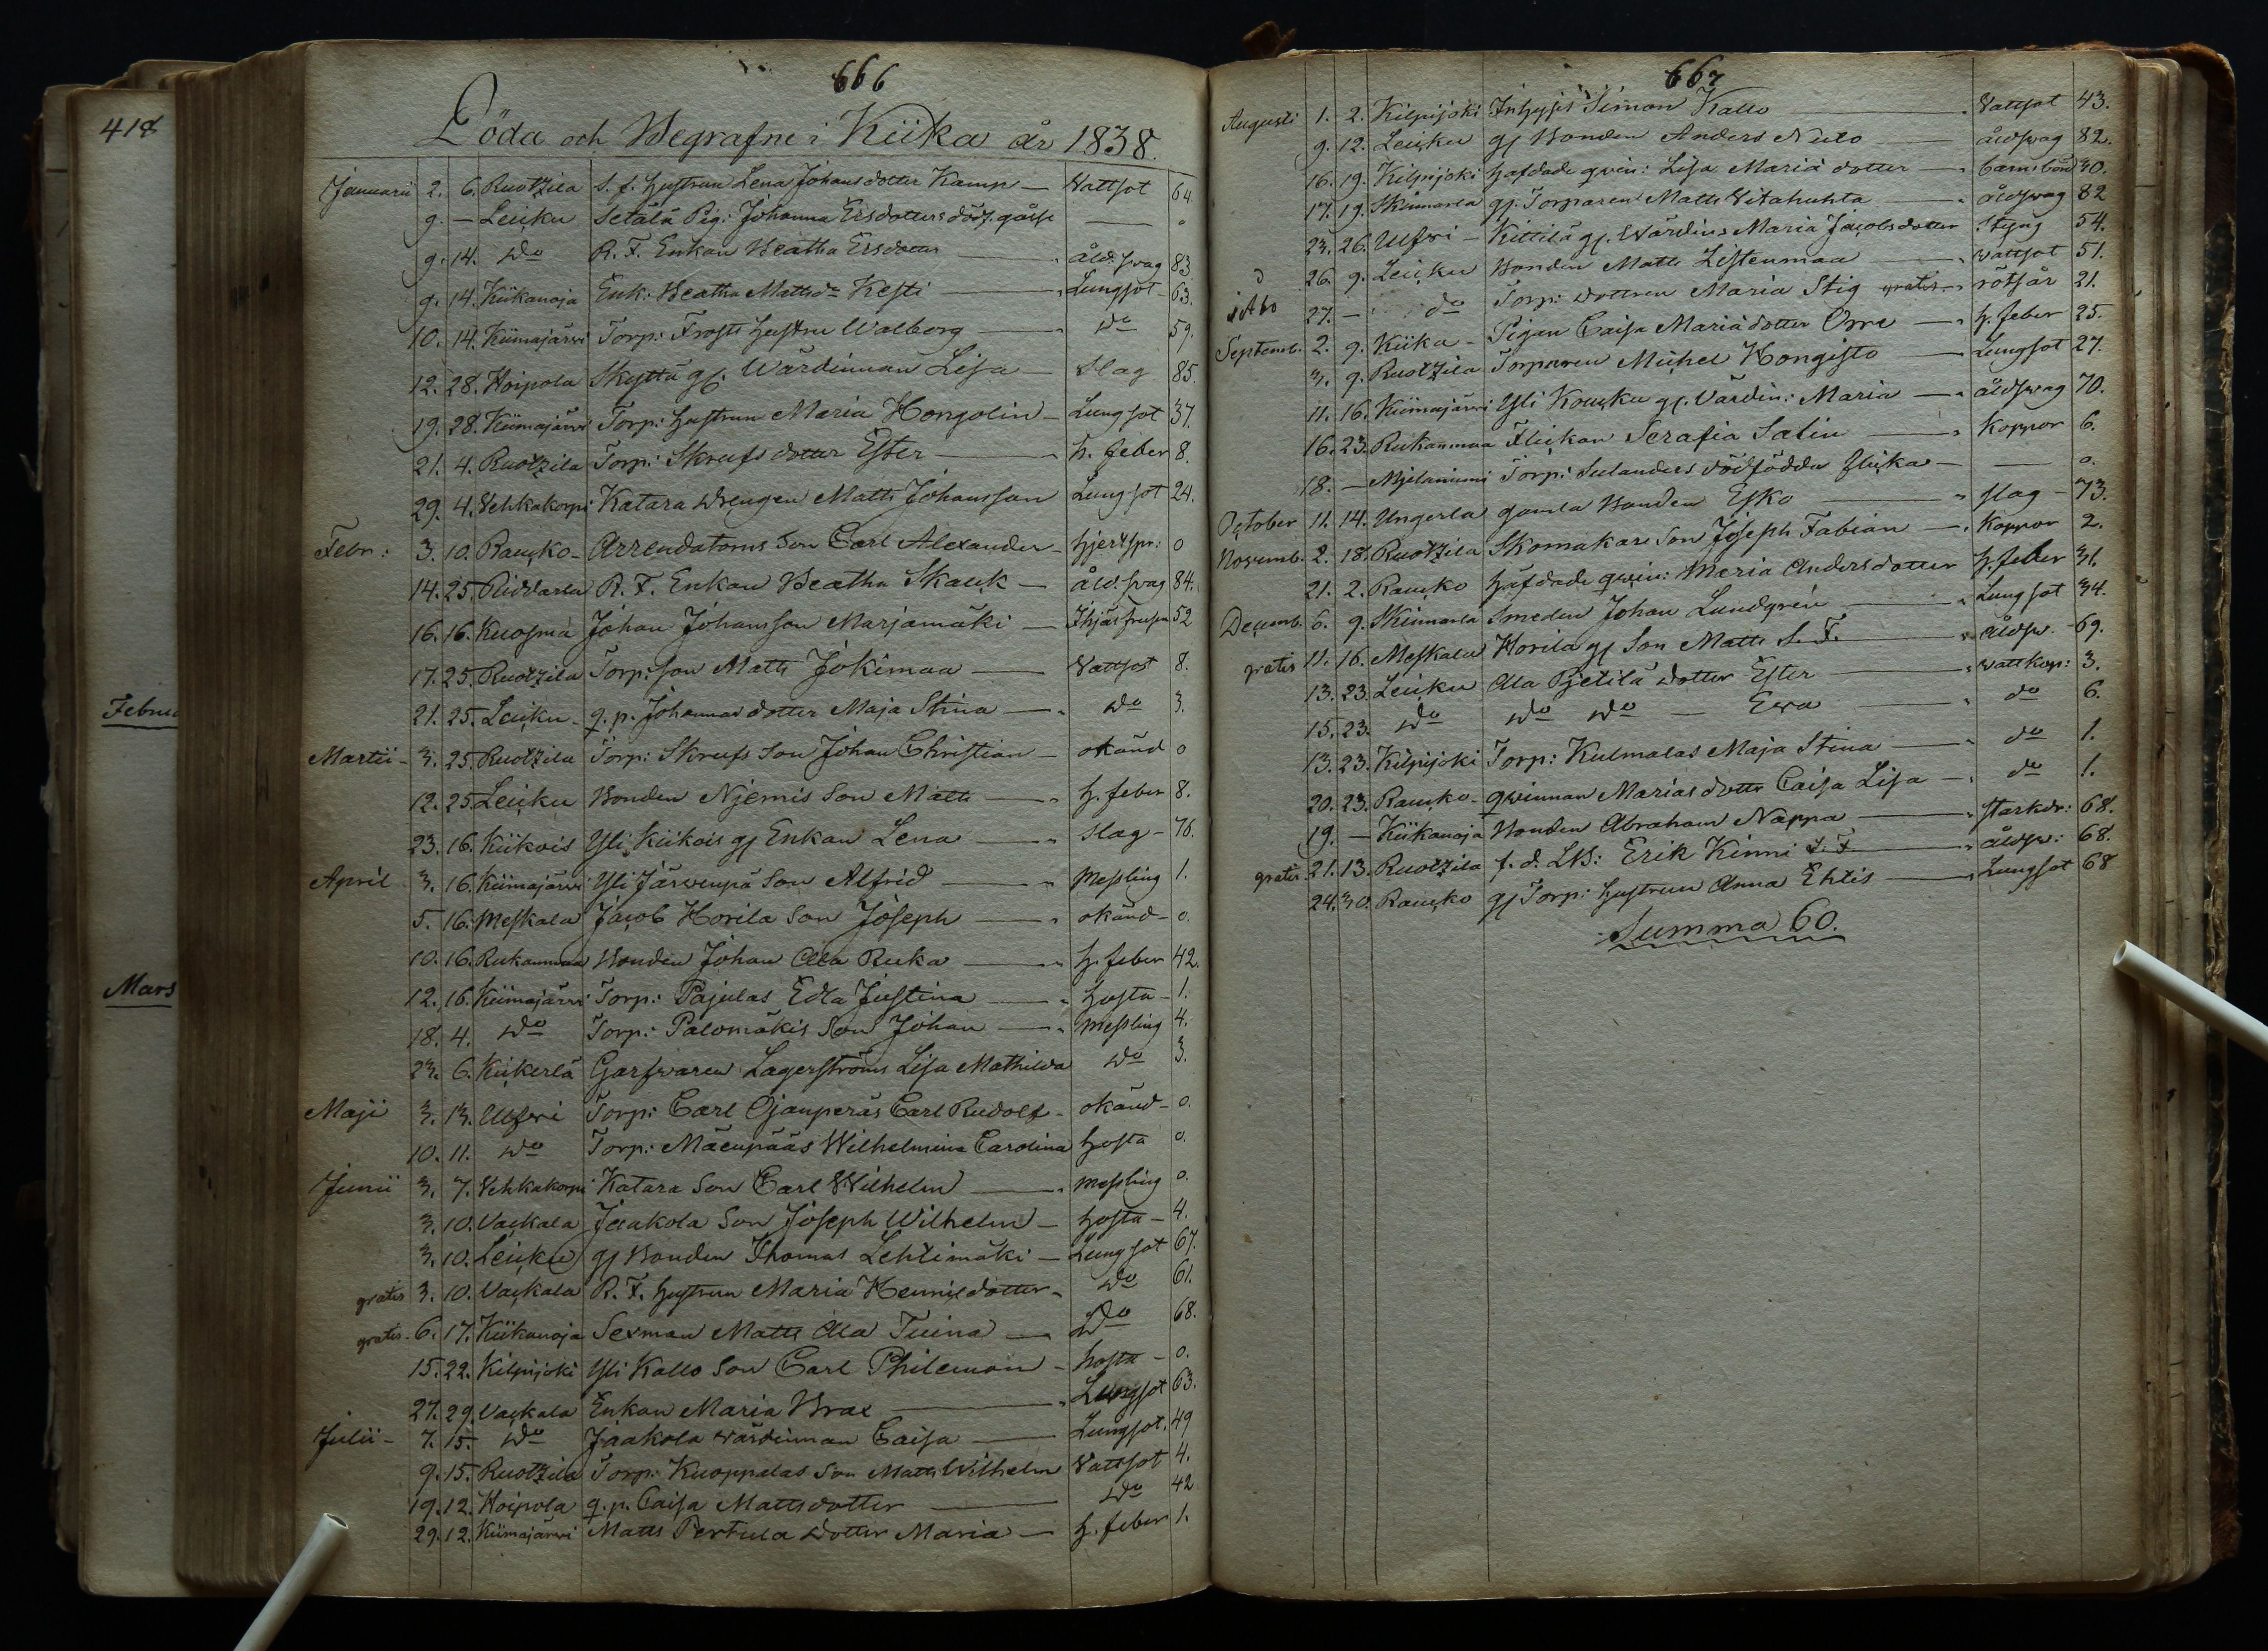 418
Februa
Mars
666
Döda och Begrafne i Kiika år 1838.
Januarii 2. 6. Ruotzila s. f. hustrun Lena Johansdotter Kamp — Vattsot 64.
9. — Leuku Setälä Pig: Johanna Ersdotters dödf. gåsse — 0
9. 14. do R. F. Enkan Beatha Ersdotter — åld. svag 83
9. 14. Kiikanoja Enk: Beatha Mattsdr Kesti — Lungsot 63.
10. 14. Kiimajärwi Torp: Frosts hustru Walborg — do 59.
12. 28. Hoipola Skyttä gl. Wärdinnan Lisa — Slag 85.
19. 28. Kiimajärwi Torp: hustrun Maria Hongolin — Lungsot 37.
21. 4. Ruotzila Torp: Skrufs dotter Ester — h. feber 8.
29. 4. Vehkakorpi Katara Drengen Matts Johansson Lungsot 24.
Febr: 3. 10. Raucko — Arrendatorns Son Carl Alexander — hjertspr: 0
14. 25. Riddarla R. F. Enkan Beatha Skauk — åld. svag 84.
16. 16. Kuosma Johan Johansson Marjamäki — Ihjäl frusen 52
17. 25. Ruotzila Torp: son Matts Jokimaa — Vattsot 8.
21. 25. Leuku — q. p. Johannas dotter Maja Stina — do 3.
Martii — 3. 25. Ruotzila Torp: Skrufs Son Johan Christian — okänd 0
12. 25. Leuku Bonden Njemis Son Matts — h. feber 8.
23. 16. Kiikois Yli Kiikois gl Enkan Lena — slag — 76.
April 3. 16. Kiimajärwi Yli Järwenpä Son Alfrid — Messling 1.
5. 16. Meskala Jacob Horila Son Joseph — okänd — 0.
10. 16. Rukanmaa Bonden Johan Ala Ruka — h. feber 42.
12. 16. Kiimajärwi Torp: Pajulas Edla Justina — hosta — 1.
18. 4. do Torp: Palomäkis Son Johan — messling 4.
23. 6. Kiikerlä Garfvaren Lagerströms Lisa Mathilda do 3.
Maji 3. 13. Ulfwi Torp: Carl Ojanperäs Carl Rudolf — okänd — 0.
10. 11. do Torp: Mäenpääs Wilhelmina Carolina hosta 0.
Junii 3. 7. Vehkakorpi Katara Son Carl Wilhelm — messling 0.
3. 10. Vackala Jaakola Son Joseph Wilhelm — hosta — 4.
3. 10. Leuku gl Bonden Thomas Lehtimäki — Lungsot 67.
gratis 3. 10. Vackala R. F. hustrun Maria Hennixdotter — do 61.
gratis 6. 17. Kiikanoja Sexman Matts Ala Tuina — do 68.
15. 22. Kilpijoki Yli Kallo Son Carl Philemon — hosta — 0.
27. 29. Vackala Enkan Maria Brax — Lungsot 63.
Julii — 7. 15. do Jaakola wärdinnan Caisa — Lungsot. 49
9. 15. Ruotzila Torp: Kuoppalas Son Matts Wilhelm Vattsot 4.
19. 12. Hoipola q. p. Caisa Mattsdotter — do 42
29. 12. Kiimajärwi Matts Pertula dotter Maria — h. feber 1.
667
Augusti 1. 2. Kilpijoki Inhyses Simon Kallo — Vattsot 43.
9. 12. Leuku gl Bonden Anders Nulo — åldswag 82.
16. 19. Kilpijoki häfdade qwin: Lisa Mariä dotter — barnsbörd 30.
17. 19. Skinnarla gl. Torparen Matts Witahuhta — åldswag 82
23. 26. Ulfwi — Kittilä gl. Wärdin: Maria Jacobsdotter Styng 54.
26. 9. Leuku Bonden Matts Listenmaa — wattsot 51.
i Åbo 27. — do Torp: dottren Maria Stig gratis — rötsår 21.
Septemb. 2. 9. Kiika — Pigan Caisa Mariä dotter Orre — h. feber 25.
3. 9. Ruotzila Torparen Michel Hongisto — Lungsot 27.
11. 16. Kiimajärwi Yli Koucku gl. Värdin: Maria — åldswag 70.
16. 23. Rukanmaa Flickan Serafia Salin — Koppor 6.
18. — Mjilaniemi Torp: Sulanders dödfödda flicka — 0.
October 11. 14. Ungerla gamla Bonden Esko — slag — 73.
Novemb. 2. 18. Ruotzila Skomakare Son Joseph Fabian — Koppor 2.
21. 2. Raucko häfdade qwin: Maria Andersdotter h. feber 31.
Decemb. 6. 9. Skinnarla Smeden Johan Lundgrén — Lungsot 34.
gratis 11. 16. Meskala Horila gl Son Matts S. F. — åldsw. 69.
13. 23. Leuku Ala Pjetilä dotter Ester — wattkop: 3.
15. 23. do do do — Ewa — do 6.
13. 23. Kilpijoki Torp: Kulmalas Maja Stina — do 1.
20. 23. Raucko — qwinnan Marias dotter Caisa Lisa — do 1.
19. — Kiikanoja Bonden Abraham Nappa — starkdr: 68.
gratis 21. 13. Ruotzila f. d. LB: Erik Kinni S. F. — åldsw: 68.
24. 30. Raucko gl Torp: hustrun Anna Ehtis — Lungsot 68
Summa 60.